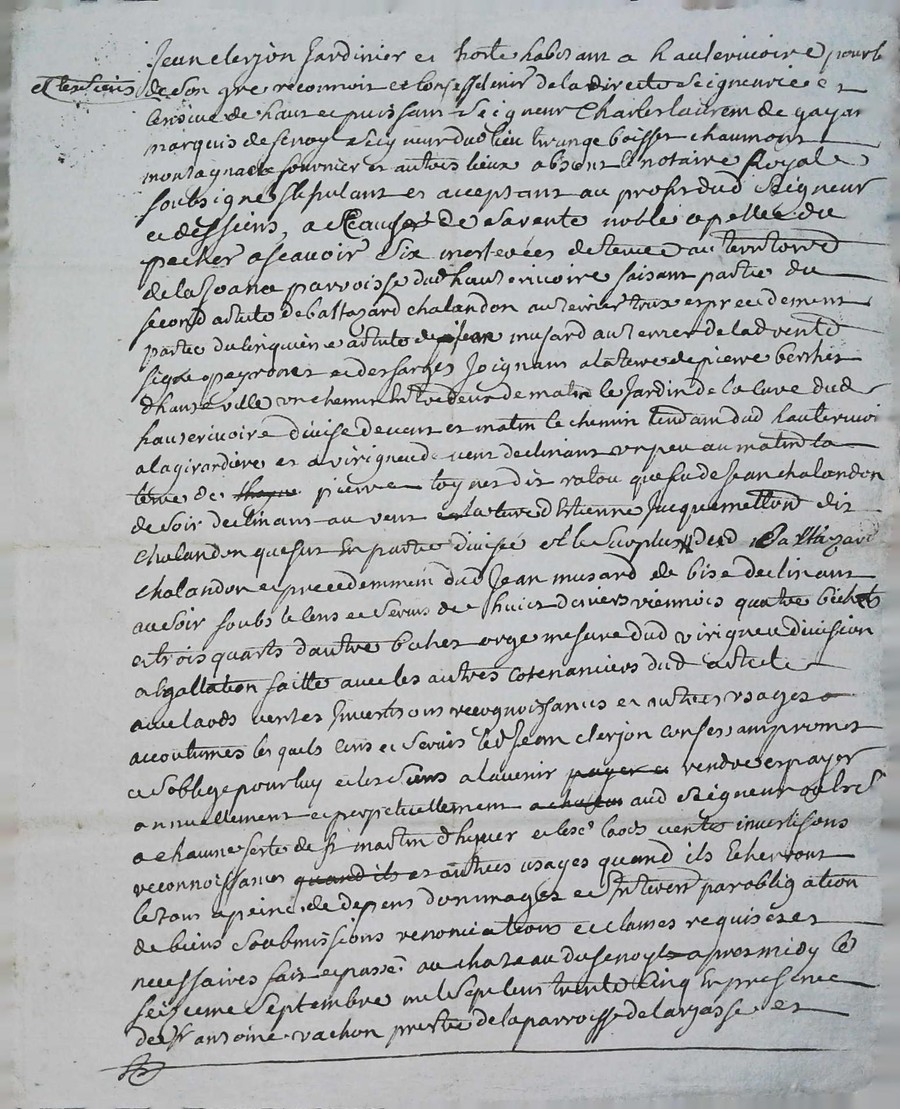 Jean clerjon Jardinier et hoste habitant a hauterivoire pour luy
et les siens de son gre reconnoit et confesse tenir de la directe Seigneurie et
censive de haut et puissant Seigneur Charles laurem de gayar
marquis de senoyl Seigneur dud lieu trange boisset chaumont
montagnac fournier et autres lieux absent le notaire Royale
soubsigné stipulant et acceptant au profit dud Seigneur
et des siens, a Cause de sa rente noble apellée du
pecher ascavoir Six mesterées de terre au territoire
de la Joana parroisse dud hauterivoire faisant partie du
second article de baltazard chalandon au terrier et precedement
partie du cinquieme article de jean musard au terrier de lad vente
signé peyronet et desfarges Joignant a la terre de pierre berthet
d'hauteville un chemin entredeux de matin le Jardin de la cure dud
hauterivoire divise de vent et matin le chemin tendant dud hauterivoi
a la girardière et a virigneu de vent declinant un peu au matin la
terre de pierre toynet dit ratou que fut de Jean chalandon
de soir declinant au vent la terre d'Etienne Jacquemetton dit
chalandon que fut En partie divisé et le surplus dud Baltazard
chalandon et precedemment dud Jean musard de bise declinant
au soir soubs le cens et servis de huict deniers viennois quatre bichets
et trois quarts d'autre bichet orge mesure dud virigneu division
et Egallation faitte avec les autres cotenanciers dud article
avec laods ventes Investisons recognoissances et autres usages
accoutumés les quels cens et servis led Jean clerjon confessant promet
et s'oblige pour luy et les siens a l'avenir payer et rendre et payer
annuellement et perpetuellement a chacun aud Seigneur
a chacune feste de st martin d'hyver et lesd laods vente investisons
reconnoissances quand ils et autres usages quand ils Echerront
le tout a peine de depens dommages et Interets par obligation
de biens soubmissions renonciations et clauses requises et
necessaires fait et passé au chateau du senoyl apres midy le
seisieme Septembre mil sept cent trente cinq En presence
de sr antoine vachon prestre de la parroisse de larajasse et